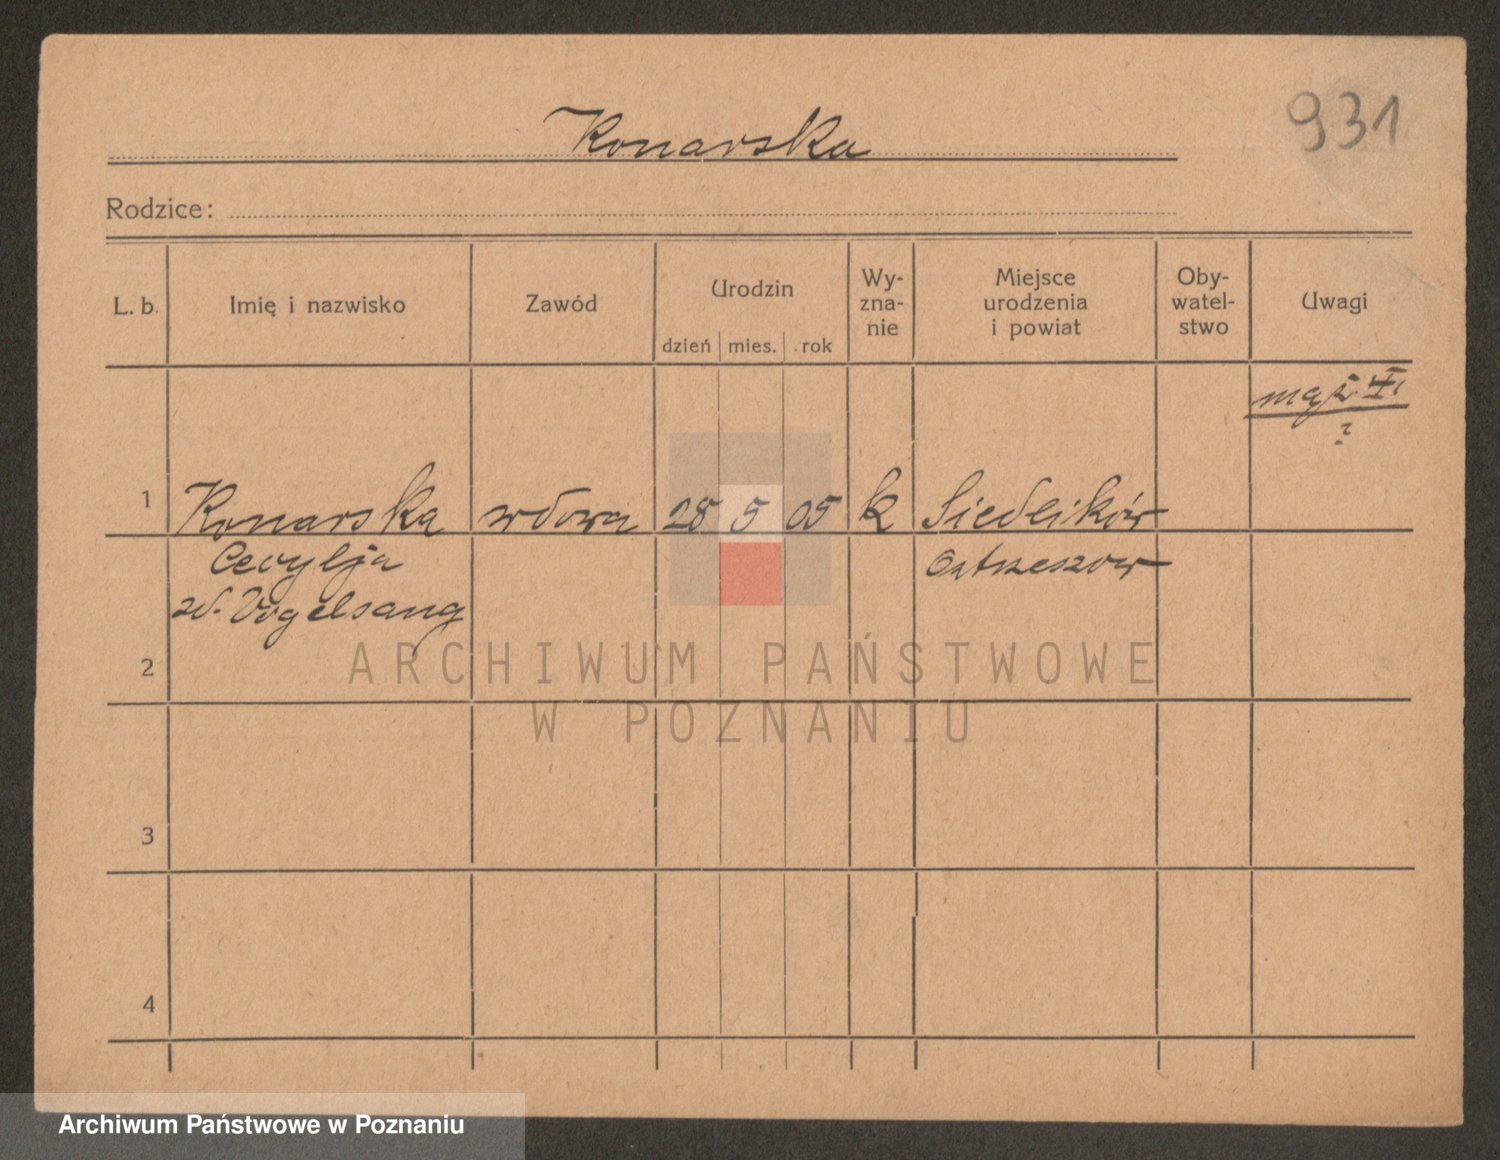 931
Konarska
Rodzice:
L. b.
Imię i nazwisko
Zawód
Urodzin
dzień mies. rok
Wy-
zna-
nie
Miejsce
urodzenia
i powiat
Oby-
watel-
stwo
Uwagi
mąż
?
1 Konarska wdowa 28 5 05 k Siedlików
Cecylja Ostrzeszow
zd. Vogelsang
2
3
4
ARCHIWUM PAŃSTWOWE
W POZNANIU
Archiwum Państwowe w Poznaniu